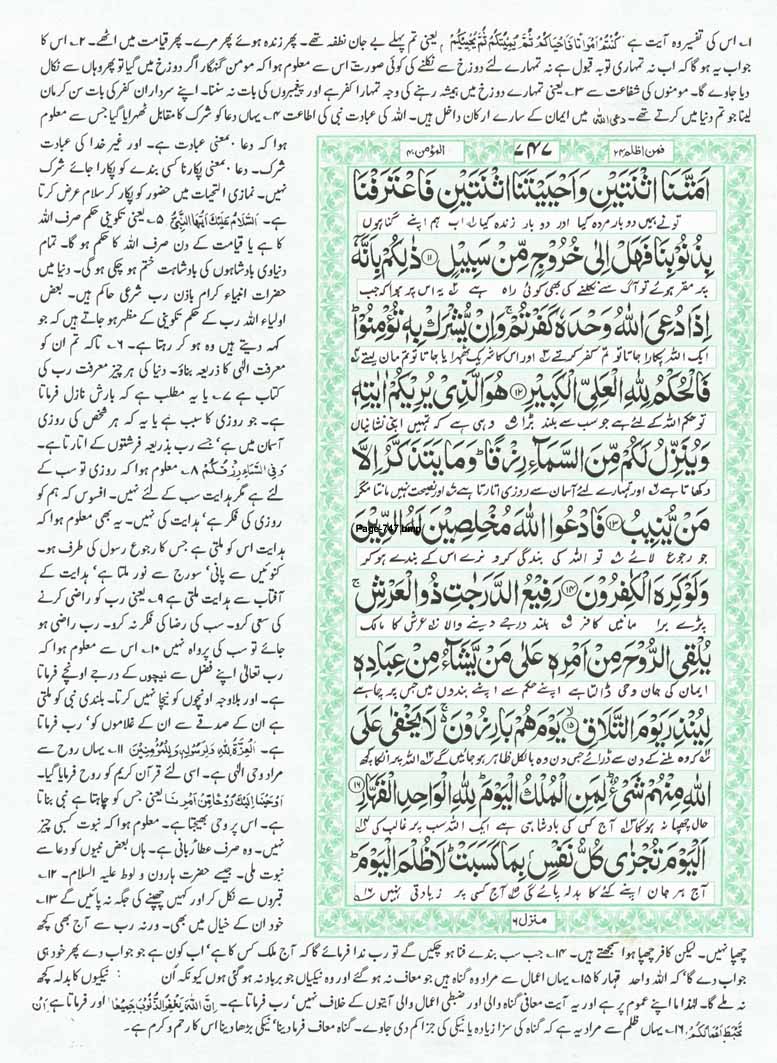 ۱۔ اس کی تفسیر وہ آیت ہے کُنْتُمْ اَمْوَاتًا فَاَحْیَاکُمْ ثُمَّ یُمِیْتُکُمْ ثُمَّ یُحْیِیْکُمْ یعنی تم پہلے بے جان نطفہ تھے۔ پھر زندہ ہوئے پھر مرے۔ پھر قیامت میں اٹھے۔ ۲۔ اس کا
جواب یہ ہو گا کہ اب نہ تمہاری توبہ قبول ہے نہ تمہارے لئے دوزخ سے نکلنے کی کوئی صورت اس سے معلوم ہوا کہ مومن گنہگار اگر دوزخ میں گیا تو پھر وہاں سے نکال
دیا جاوے گا۔ مومنوں کی شفاعت سے ۳۔ یعنی تمہارے دوزخ میں ہمیشہ رہنے کی وجہ تمہارا کفر ہے اور پیغمبروں کی بات نہ سننا۔ اپنے سرداران کفر کی بات سن کر مان
لینا جو تم دنیا میں کرتے تھے۔ دعی اللہ میں ایمان کے سارے ارکان داخل ہیں۔ اللہ کی عبادت نبی کی اطاعت ۴۔ یہاں دعا کو شرک کا مقابل ٹھہرایا گیا جس سے معلوم
فمن اظلم ۲۴
۷۴۷
المؤمن ۴۰
اَمَتَّنَا اثْنَتَیْنِ وَاَحْیَیْتَنَا اثْنَتَیْنِ فَاعْتَرَفْنَا
تو نے ہمیں دو بار مردہ کیا اور دو بار زندہ کیا ۱ اب ہم اپنے گناہوں
بِذُنُوْبِنَا فَهَلْ اِلٰی خُرُوْجٍ مِّنْ سَبِیْلٍ ۝۱۱ ذٰلِکُمْ بِاَنَّهٗۤ
پر مقر ہوئے تو آگ سے نکلنے کی بھی کوئی راہ ہے ۲ یہ اس پر ہوا کہ جب
اِذَا دُعِیَ اللّٰهُ وَحْدَهٗ کَفَرْتُمْ ۚ وَاِنْ یُّشْرَكْ بِهٖ تُؤْمِنُوْا ؕ
ایک اللہ پکارا جاتا تو تم کفر کرتے ۳ اور اس کا شریک ٹھہرایا جاتا تو تم مان لیتے ۴
فَالْحُکْمُ لِلّٰهِ الْعَلِیِّ الْکَبِیْرِ ۝۱۲ هُوَ الَّذِیْ یُرِیْکُمْ اٰیٰتِهٖ
تو حکم اللہ کے لئے ہے جو سب سے بلند بڑا ۵ وہی ہے کہ تمہیں اپنی نشانیاں
وَیُنَزِّلُ لَکُمْ مِّنَ السَّمَآءِ رِزْقًا ؕ وَمَا یَتَذَکَّرُ اِلَّا
دکھاتا ہے ۶ اور تمہارے لئے آسمان سے روزی اتارتا ہے ۷ اور نصیحت نہیں مانتا مگر
مَنْ یُّنِیْبُ ۝۱۳ فَادْعُوا اللّٰهَ مُخْلِصِیْنَ لَهُ الدِّیْنَ
Page-747.bmp
جو رجوع لائے ۸ تو اللہ کی بندگی کرو نرے اس کے بندے ہو کر
وَلَوْ کَرِهَ الْکٰفِرُوْنَ ۝۱۴ رَفِیْعُ الدَّرَجٰتِ ذُو الْعَرْشِ ۚ
پڑے برا مانیں کافر ۹ بلند درجے دینے والا ۱۰ عرش کا مالک
یُلْقِی الرُّوْحَ مِنْ اَمْرِهٖ عَلٰی مَنْ یَّشَآءُ مِنْ عِبَادِهٖ
ایمان کی جان وحی ڈالتا ہے اپنے حکم سے اپنے بندوں میں جس پر چاہے
لِیُنْذِرَ یَوْمَ التَّلَاقِ ۝۱۵ یَوْمَ هُمْ بَارِزُوْنَ ۚ لَا یَخْفٰی عَلَی
۱۱ کہ وہ ملنے کے دن سے ڈرائے جس دن وہ بالکل ظاہر ہو جائیں گے ۱۲ اللہ پر ان کا کچھ
اللّٰهِ مِنْهُمْ شَیْءٌ ؕ لِمَنِ الْمُلْكُ الْیَوْمَ ؕ لِلّٰهِ الْوَاحِدِ الْقَهَّارِ ۝۱۶
حال چھپا نہ ہو گا ۱۳ آج کس کی بادشاہی ہے ایک اللہ سب پر غالب کی ۱۴
اَلْیَوْمَ تُجْزٰی کُلُّ نَفْسٍۭ بِمَا کَسَبَتْ ؕ لَا ظُلْمَ الْیَوْمَ ؕ
آج ہر جان اپنے کئے کا بدلہ پائے گی ۱۵ آج کسی پر زیادتی نہیں ۱۶
منزل ۶
ہوا کہ دعا ‎بمعنی عبادت ہے۔ اور غیر خدا کی عبادت
شرک۔ دعا ‎بمعنی پکارنا کسی بندے کو پکارا جائے شرک
نہیں۔ نمازی التحیات میں حضور کو پکار کر سلام عرض کرتا
ہے۔ اَلسَّلَامُ عَلَیْكَ اَیُّهَا النَّبِیُّ ۵۔ یعنی تکوینی حکم صرف اللہ
کا ہے یا قیامت کے دن صرف اللہ کا حکم ہو گا۔ تمام
دنیاوی بادشاہوں کی بادشاہت ختم ہو چکی ہو گی۔ دنیا میں
حضرات انبیاء کرام باذن رب شرعی حاکم ہیں۔ بعض
اولیاء اللہ رب کے حکم تکوینی کے مظہر ہو جاتے ہیں کہ جو
کہہ دیتے ہیں وہ ہو کر رہتا ہے۔ ۶۔ تاکہ تم ان کو
معرفت الٰہی کا ذریعہ بناؤ۔ دنیا کی ہر چیز معرفت رب کی
کتاب ہے ۷۔ یا یہ مطلب ہے کہ بارش نازل فرماتا
ہے۔ جو روزی کا سبب ہے یا یہ کہ ہر شخص کی روزی
آسمان میں ہے‘ جسے رب بذریعہ فرشتوں کے اتارتا ہے۔
وَفِی السَّمَآءِ رِزْقُکُمْ ۸۔ معلوم ہوا کہ روزی تو سب کے
لئے ہے مگر ہدایت سب کے لئے نہیں۔ افسوس کہ ہم کو
روزی کی فکر ہے‘ ہدایت کی نہیں۔ یہ بھی معلوم ہوا کہ
ہدایت اس کو ملتی ہے جس کا رجوع رسول کی طرف ہو۔
کنوئیں سے پانی‘ سورج سے نور ملتا ہے‘ ہدایت کے
آفتاب سے ہدایت ملتی ہے ۹۔ یعنی رب کو راضی کرنے
کی سعی کرو۔ سب کی رضا کی فکر نہ کرو۔ رب راضی ہو
جائے تو سب کی پرواہ نہیں ۱۰۔ اس سے معلوم ہوا کہ
رب تعالٰی اپنے فضل سے نیچوں کے درجے اونچے فرماتا
ہے۔ اور بلاوجہ اونچوں کو نیچا نہیں کرتا۔ بلندی نبی کو ملتی
ہے ان کے صدقے سے ان کے غلاموں کو‘ رب فرماتا
ہے۔ اَلْعِزَّةُ لِلّٰهِ وَلِرَسُوْلِهٖ وَلِلْمُؤْمِنِیْنَ ۱۱۔ یہاں روح سے
مراد وحی الٰہی ہے۔ اسی لئے قرآن کریم کو روح فرمایا گیا۔
اَوْحَیْنَا اِلَیْكَ رُوْحًا مِّنْ اَمْرِنَا یعنی جس کو چاہتا ہے نبی بناتا
ہے۔ اس پر وحی بھیجتا ہے۔ معلوم ہوا کہ نبوت کسبی چیز
نہیں۔ وہ صرف عطاء ربانی ہے۔ ہاں بعض نبیوں کو دعا سے
نبوت ملی۔ جیسے حضرت ہارون و لوط علیہ السلام۔ ۱۲۔
قبروں سے نکل کر اور کہیں چھپنے کی جگہ نہ پائیں گے ۱۳۔
خود ان کے خیال میں بھی۔ ورنہ رب سے آج بھی کچھ
چھپا نہیں۔ لیکن کافر چھپا ہوا سمجھتے ہیں۔ ۱۴۔ جب سب بندے فنا ہو چکیں گے تو رب ندا فرمائے گا کہ آج ملک کس کا ہے‘ اب کون ہے جو جواب دے پھر خود ہی
جواب دے گا‘ کہ اللہ واحد قہار کا ۱۵۔ یہاں اعمال سے مراد وہ گناہ ہیں جو معاف نہ ہو گئے اور وہ نیکیاں جو برباد نہ ہو گئی ہوں کیونکہ اُن نیکیوں کا بدلہ کچھ
نہ ملے گا۔ لہذا ما اپنے عموم پر ہے اور یہ آیت معافی گناہ والی اور ضبطی اعمال والی آیتوں کے خلاف نہیں‘ رب فرماتا ہے۔ اِنَّ اللّٰهَ یَغْفِرُ الذُّنُوْبَ جَمِیْعًا اور فرماتا ہے اَنْ
تَحْبَطَ اَعْمَالُکُمْ ۱۶۔ یہاں ظلم سے مراد یہ ہے کہ گناہ کی سزا زیادہ یا نیکی کی جزا کم دی جاوے۔ گناہ معاف فرما دینا‘ نیکی بڑھا دینا اس کا رحم و کرم ہے۔